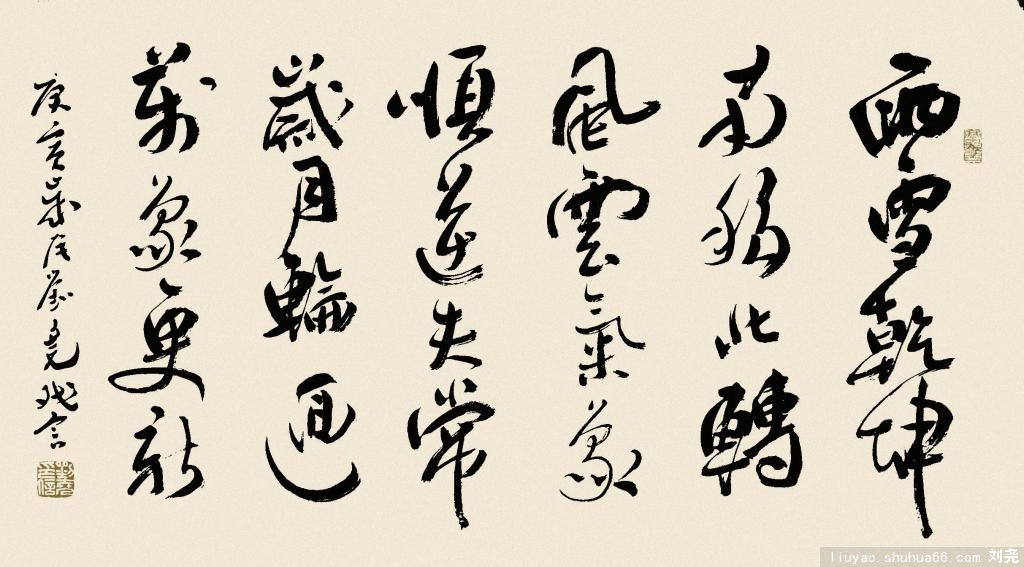 雨雪乾坤
南移北轉
風雲氣象
順逆失常
歲月輪迴
萬象更新
庚寅歲尾劉堯戏言
liuyao.shuhua66.com 刘尧